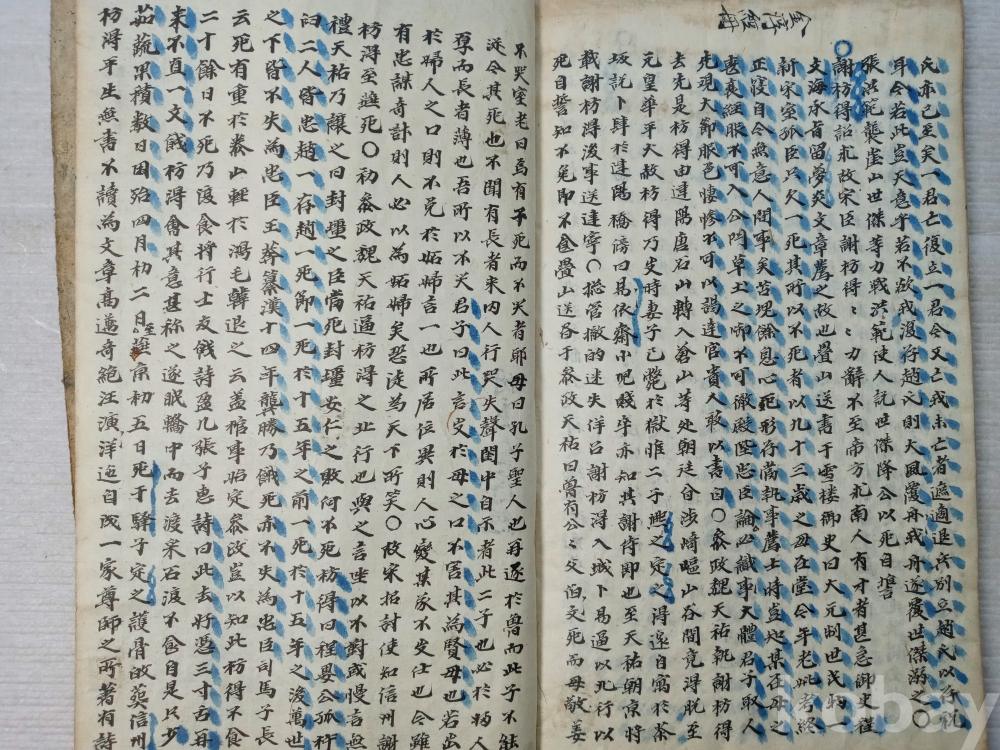 氏亦已至矣一君亡復立一君今又亡我未亡者遮適退兵別立趙氏以存祀
耳今若此豈天意乎若不欲我復存趙氏則大風覆舟我舟遂覆世傑溺之〇
張洪範襲崖山世傑等力戰洪範使人說世傑降公以死自誓
〇謝枋得詔求故宋臣謝枋得〻力辭不至帝方求南人有才者甚急御史程
文海承旨留夢炎文章薦之故也疊山送書于雪樓御史曰大元制世民物
新宋室孤臣只欠一死其所以不死者以九十三歲之母在堂今年老此君終
正寢自今無意人間事矣 餘息心死形存 執事薦士時豈知某在母之
喪衰絰服不可入公門草土之 不可徹殿陛忠臣論必識事大體君子取人
先現大節服色悽慘不可以謁達官貴人敢以書白〇參政魏天祐執謝枋得
去先是枋得由建陽唐石山轉入倉山等處朝廷分涉崎嶇山谷間竟得脫至
元皇華平大赦枋得乃出時妻子已斃於獄惟二子熙之定之得還自寓於茶
坂託卜肆於建陽橋傍曰易依齋小兒賤卒亦知其謝侍郎也至天祐朝京特
載謝枋得後事送達寧〇捴管撤的迷失洋呂謝枋得入城卜易過以北行以
死自誓知不免即不食疊山送吾于參政天祐曰魯有公〻父伯文死而母敬姜
不哭室老曰焉有子死而不哭者耶母曰孔子聖人也再逐於魯而此子不能
從今其死也不聞有長者來內人行哭失聲閨中自示者此二子也必於婦人
厚而長者薄也吾所以不哭君子曰此言出於母之口不害其為賢母也若出
於婦人之口則不免於妬婦言一也所居位異則人心變某家不出仕也今雖
有忠謀奇計則人必以為妬婦矣恐徒為天下所笑〇故宋招討使知信州謝
枋得至燕死〇初參政魏天祐逼枋得之北行也與之言坐以不對或慢言無
禮天祐乃讓之曰封疆之臣當死封疆安仁之敗何不死枋得曰程嬰公孫杵
臼二人皆忠趙一存趙一死節一死於十五年之前一死於十五年之後萬世
之下皆不失為忠臣王莽篡漢十四年龔勝乃餓死亦不失為忠臣司馬子長
云死有重於泰山輕於鴻毛韓退之云蓋棺事始定參政豈以知此枋得不食
二十餘日不死乃復食將行士友餞詩盈几張子惠詩曰此去好憑三寸舌再
來不直一文錢枋得會其意甚称之遂臥轎中而去渡采石渡不食自是只少
茹蔬果積數日困殆四月初二日至燕京初五日死于驛子定之護骨歸葬信州
枋得平生無書不讀為文章高邁奇絕汪演洋迤自成一家尊師之所著有詩